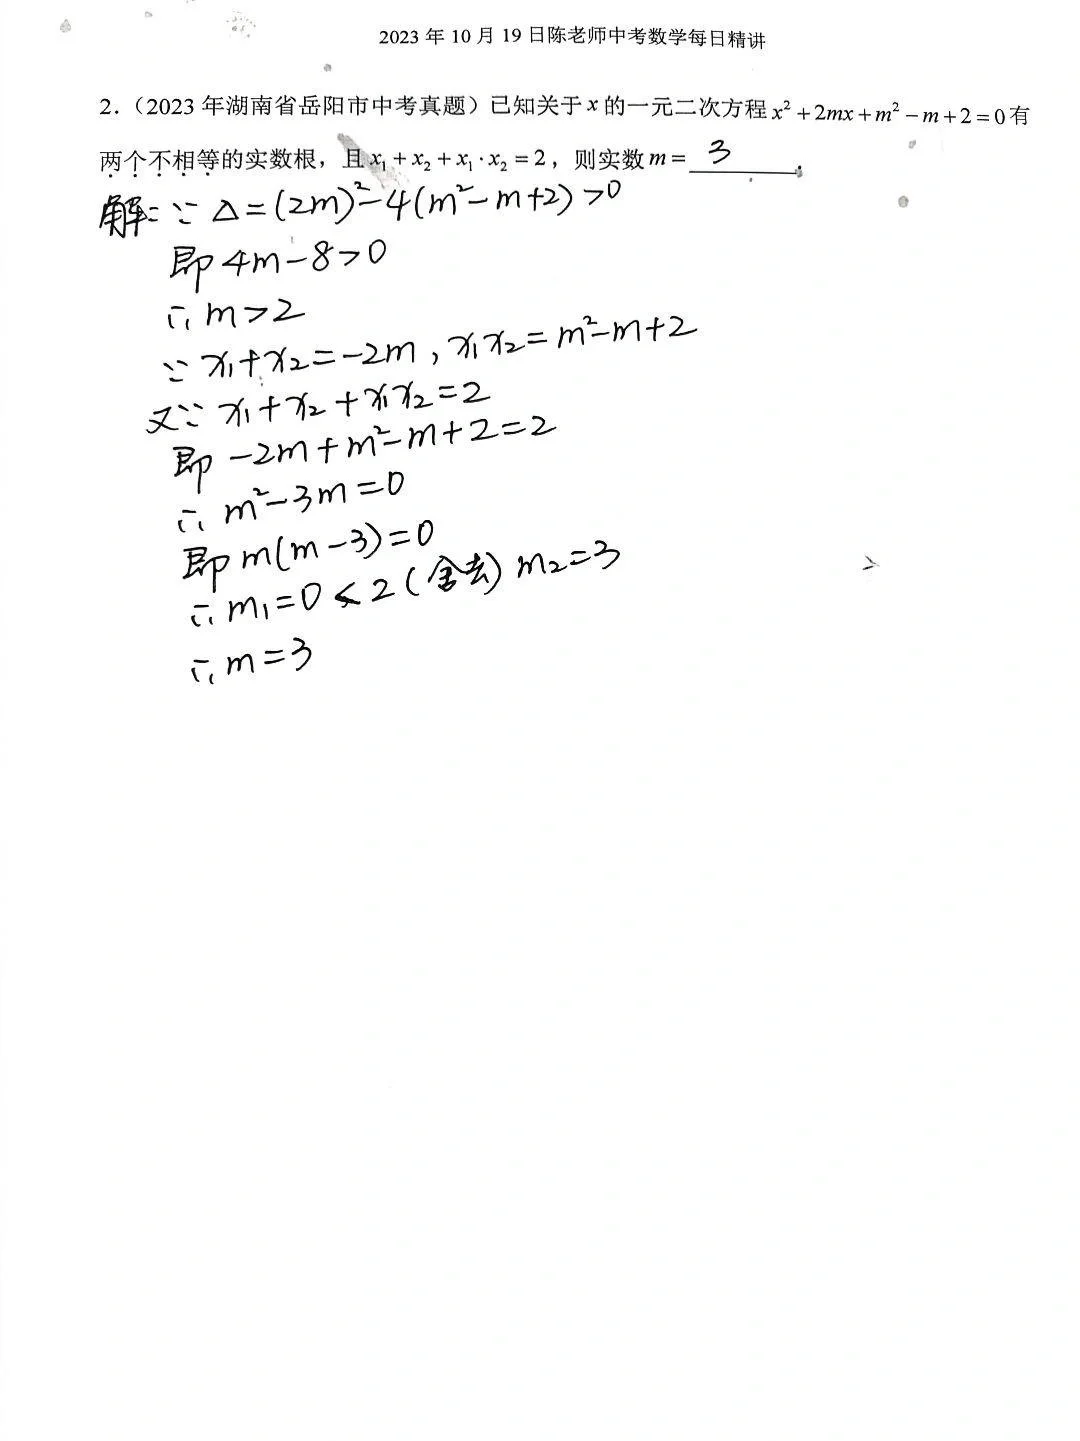 2023 年 10 月 19 日陈老师中考数学每日精讲
2.（2023 年湖南省岳阳市中考真题）已知关于 x 的一元二次方程 x²+2mx+m²−m+2=0 有
两个不相等的实数根，且 x₁+x₂+x₁·x₂=2，则实数 m= 3 .
解:∵ △=(2m)²-4(m²-m+2)>0
即 4m-8>0
∴ m>2
∵ x₁+x₂=-2m, x₁x₂=m²-m+2
又∵ x₁+x₂+x₁x₂=2
即 -2m+m²-m+2=2
∴ m²-3m=0
即 m(m-3)=0
∴ m₁=0<2(舍去) m₂=3
∴ m=3